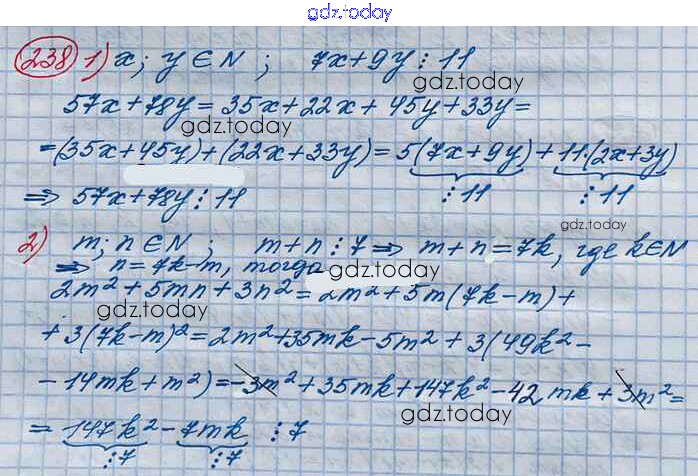 gdz.today
238 1) x; y ∈ N ; 7x+9y ⋮ 11
gdz.today
57x+78y = 35x+22x+45y+33y=
gdz.today
=(35x+45y)+(22x+33y)=5(7x+9y)+11·(2x+3y)
⋮11 ⋮11
⇒ 57x+78y ⋮ 11
gdz.today
2) m; n ∈ N ; m+n ⋮ 7 ⇒ m+n=7k, где k∈N
⇒ n=7k-m, тогда
gdz.today
2m²+5mn+3n²=2m²+5m(7k-m)+
gdz.today
+3(7k-m)²=2m²+35mk-5m²+3(49k²-
-14mk+m²)=-3m²+35mk+147k²-42mk+3m²=
gdz.today
=147k²-7mk ⋮7
⋮7 ⋮7